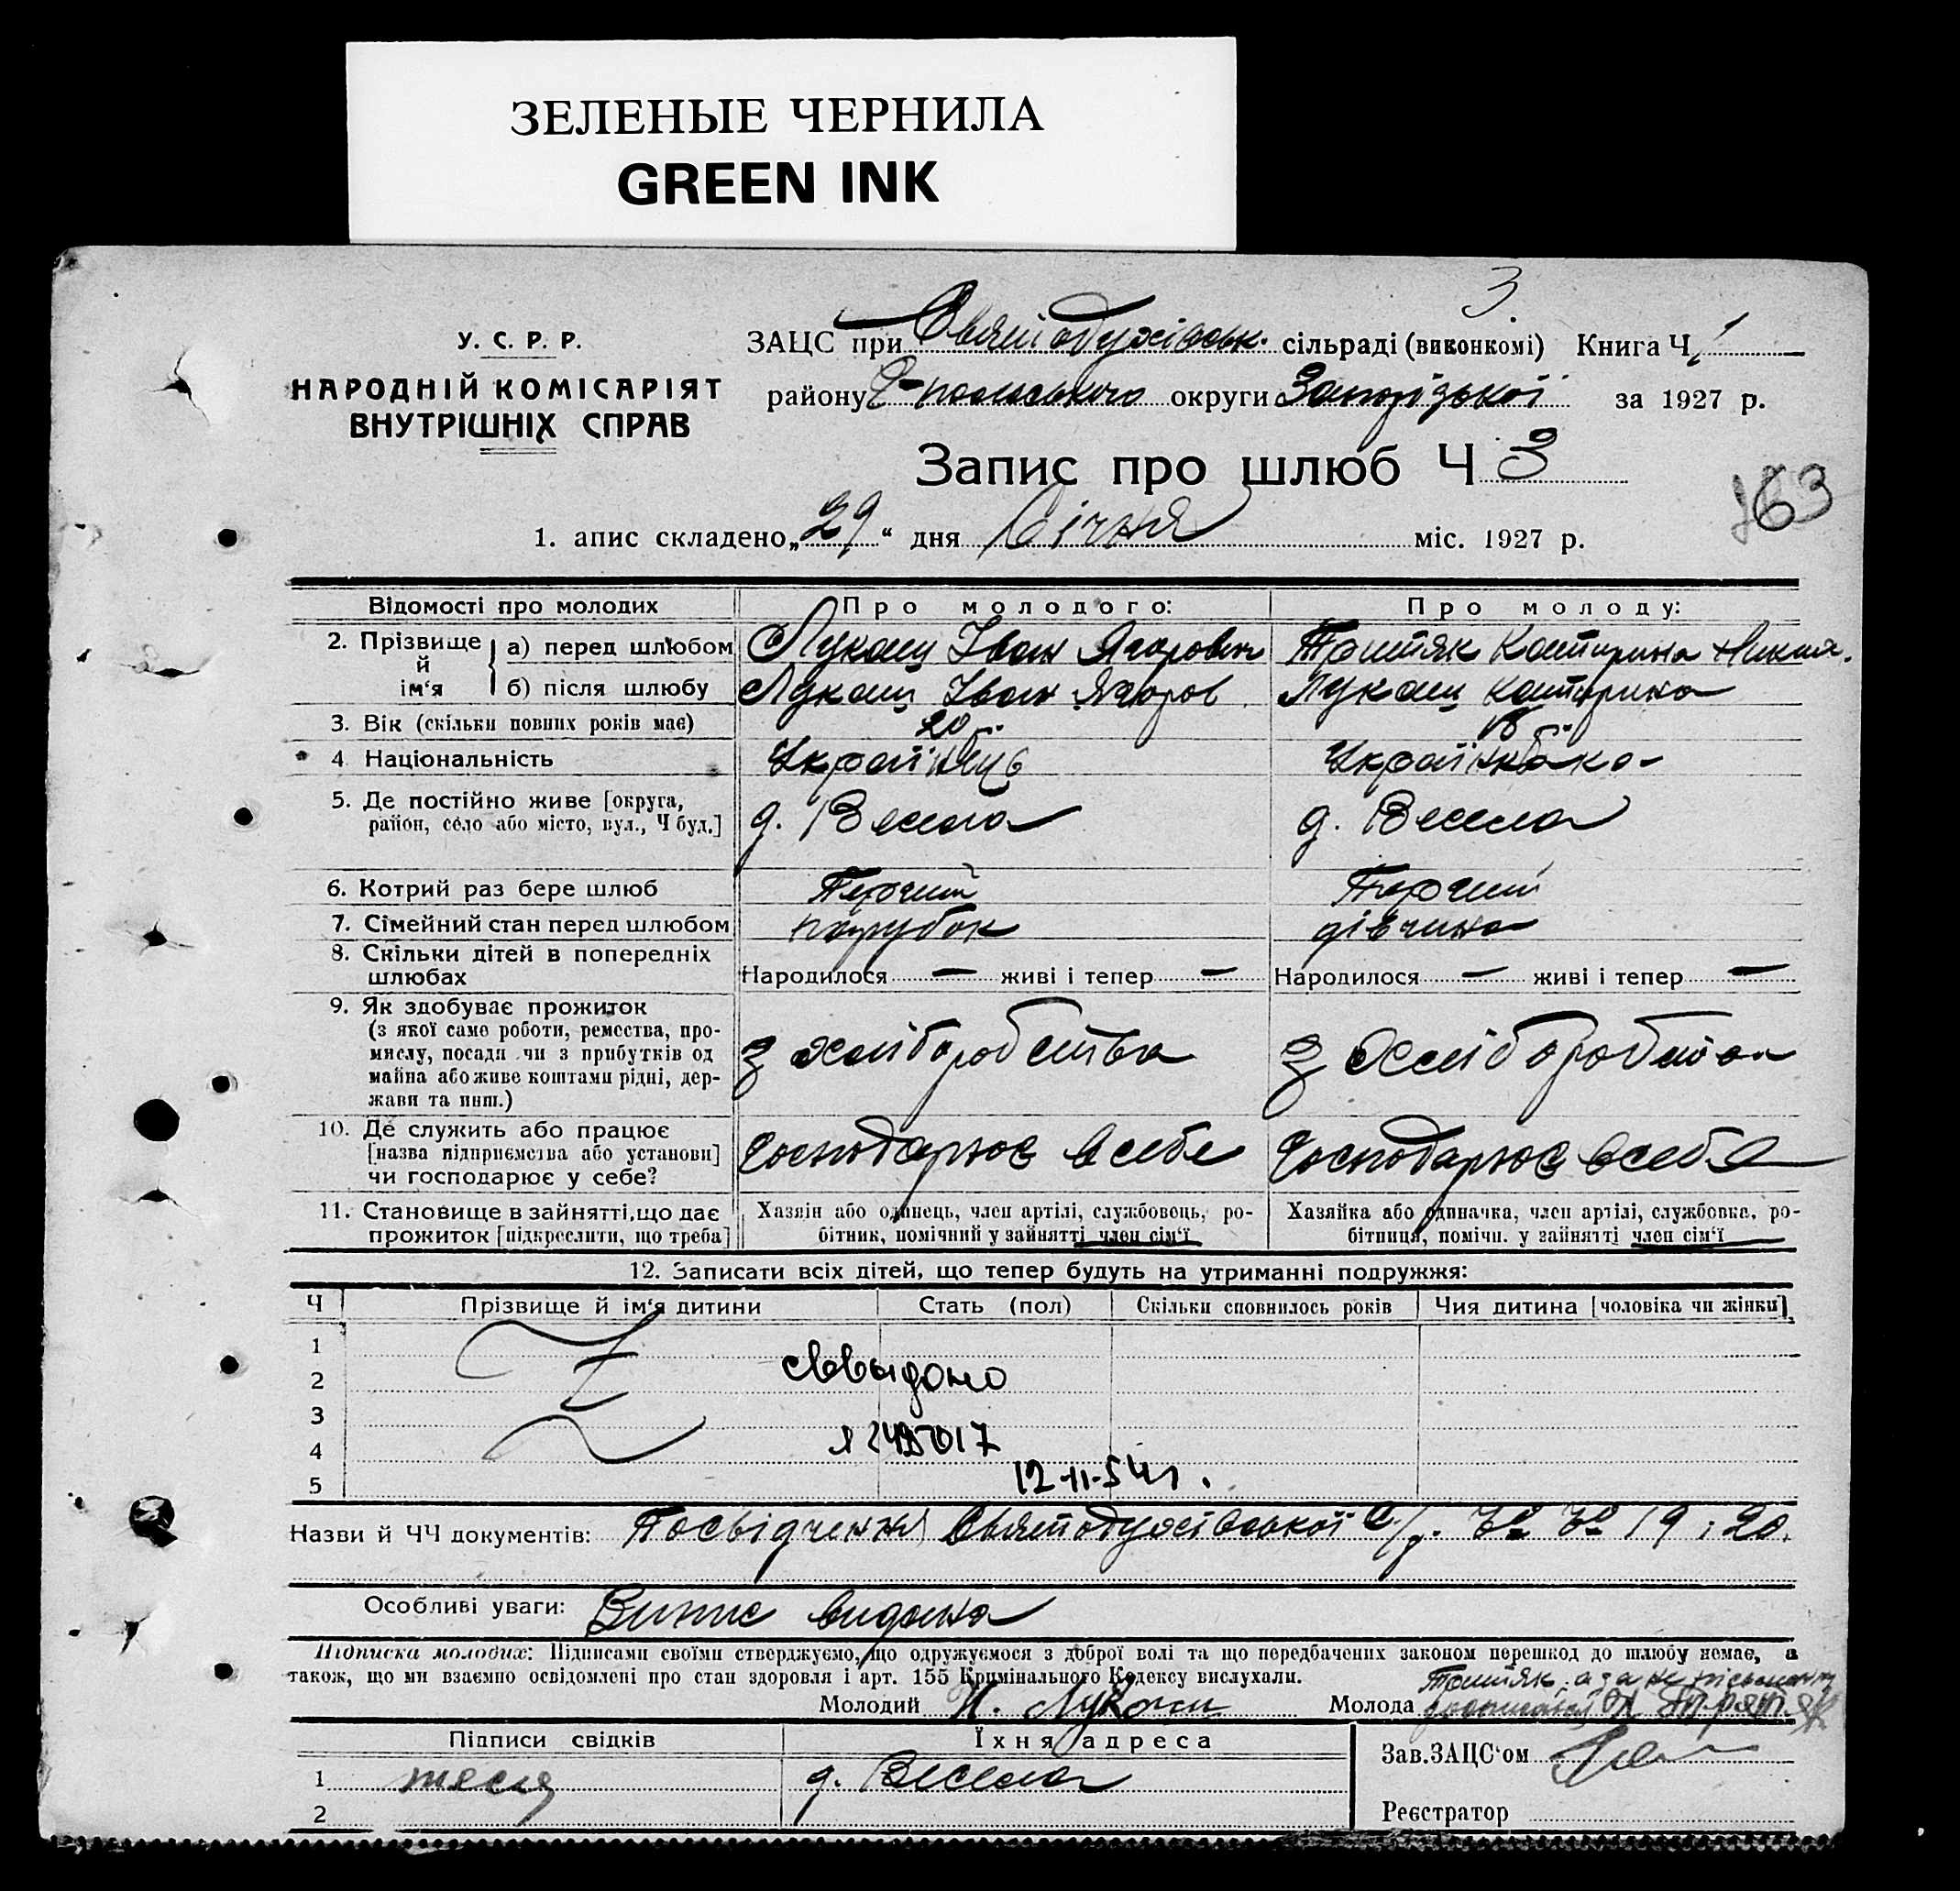 ЗЕЛЕНЫЕ ЧЕРНИЛА
GREEN INK
3
У. С. Р. Р.
НАРОДНІЙ КОМІСАРІЯТ
ВНУТРІШНІХ СПРАВ
ЗАЦС при Святодухівськ. сільраді (виконкомі) Книга Ч. 1
району округи Запорізької за 1927 р.
Запис про шлюб Ч 3
163
1. апис складено „29“ дня Січня міс. 1927 р.
Відомості про молодих Про молодого: Про молоду:
2. Прізвище й ім‘я а) перед шлюбом Лукаш Іван Ягорович Катирина
б) після шлюбу Лукаш Іван Ягоров Лукаш Катирина
3. Вік (скільки повних років має) 20 18
4. Національність Українець Українка
5. Де постійно живе [округа, район, село або місто, вул., Ч буд.] д. Весела д. Весела
6. Котрий раз бере шлюб Перчий Перчий
7. Сімейний стан перед шлюбом парубок дівчина
8. Скільки дітей в попередніх шлюбах Народилося — живі і тепер — Народилося — живі і тепер —
9. Як здобуває прожиток (з якої само роботи, ремества, промислу, посади чи з прибутків од майна або живе коштами рідні, держави та инш.) з хліборобства з хліборобства
10. Де служить або працює [назва підприємства або установи] чи господарює у себе? Господарює в себе Господарює в себе
11. Становище в зайнятті, що дає прожиток [підкреслити, що треба] Хазяін або одинець, член артілі, службовець, робітник, помічний у зайнятті член сім‘ї Хазяйка або одиначка, член артілі, службовка, робітниця, помічн. у зайнятті член сім‘ї
12. Записати всіх дітей, що тепер будуть на утриманні подружжя:
Ч Прізвище й ім‘я дитини Стать (пол) Скільки сповнилось років Чия дитина [чоловіка чи жінки]
1
2
3
4
5
12-11-54
Назви й ЧЧ документів: Посвідчення Святодухівської с/р. № № 19 і 20.
Особливі уваги: Випис видана
Підписка молодих: Підписами своїми стверджуємо, що одружуємося з доброї волі та що передбачених законом перешкод до шлюбу немає, а
також, що ми взаємно освідомлені про стан здоровля і арт. 155 Кримінального Кодексу вислухали.
Молодий И. Лукаш Молода
Підписи свідків Їхня адреса Зав. ЗАЦС‘ом
1 д. Весела
2 Реєстратор